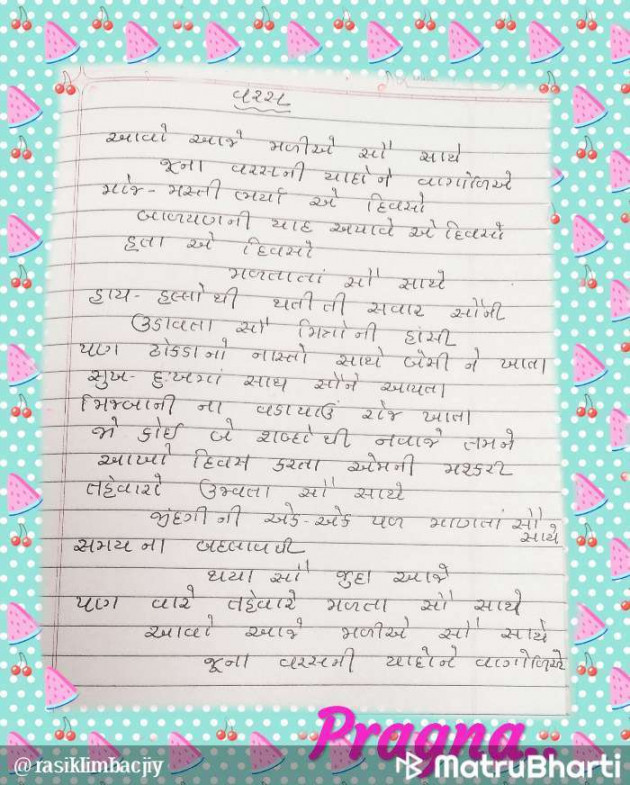 વરસ
આવો આજે મળીએ સૌ સાથે
જૂના વરસની યાદોને વાગોળિએ
મોજ-મસ્તી ભર્યા એ દિવસો
બાળપણની યાદ અપાવે એ દિવસો
હતા એ દિવસો
મળતાતાં સૌ સાથે
હાય-હલ્લોથી થતીતી સવાર સૌની
ઉડાવતા સૌ મિત્રોની હાંસી
પણ ઢોકડાનો નાસ્તો સાથે બેસી ને ખાતા
સુખ-દુઃખમાં સાથ સૌને આપતા
મિજબાની ના વડાપાઉં રોજ ખાતા
જો કોઈ બે શબ્દોથી નવાજે તમને
આખો દિવસ કરતા એમની મશ્કરી
તહેવારો ઉજવતા સૌ સાથે
જીંદગી ની એક-એક પળ માણતાં સૌ સાથે
સમય ના બદલાવથી
થયા સૌ જુદા આજે
પણ વારે તહેવારે મળતા સૌ સાથે
આવો આજે મળીએ સૌ સાથે
જૂના વરસની યાદોને વાગોળિએ
Pragna..
@rasiklimbacjiy
MatruBharti